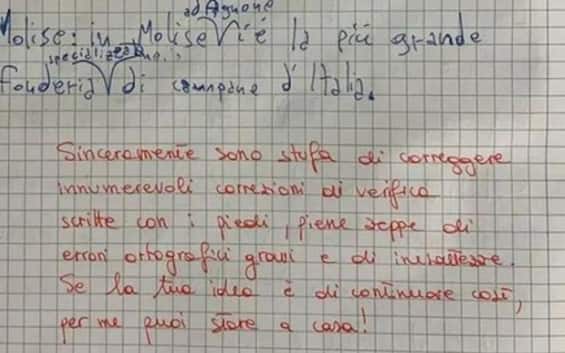 ad Agnone
Molise: in Molise V i è la più grande
specializzata
fonderia V di campane d'Italia.
Sinceramente sono stufa di correggere
innumerevoli correzioni di verifica
scritte con i piedi, piene zeppe di
errori ortografici gravi e di inesattezze.
Se la tua idea è di continuare così,
per me puoi stare a casa!